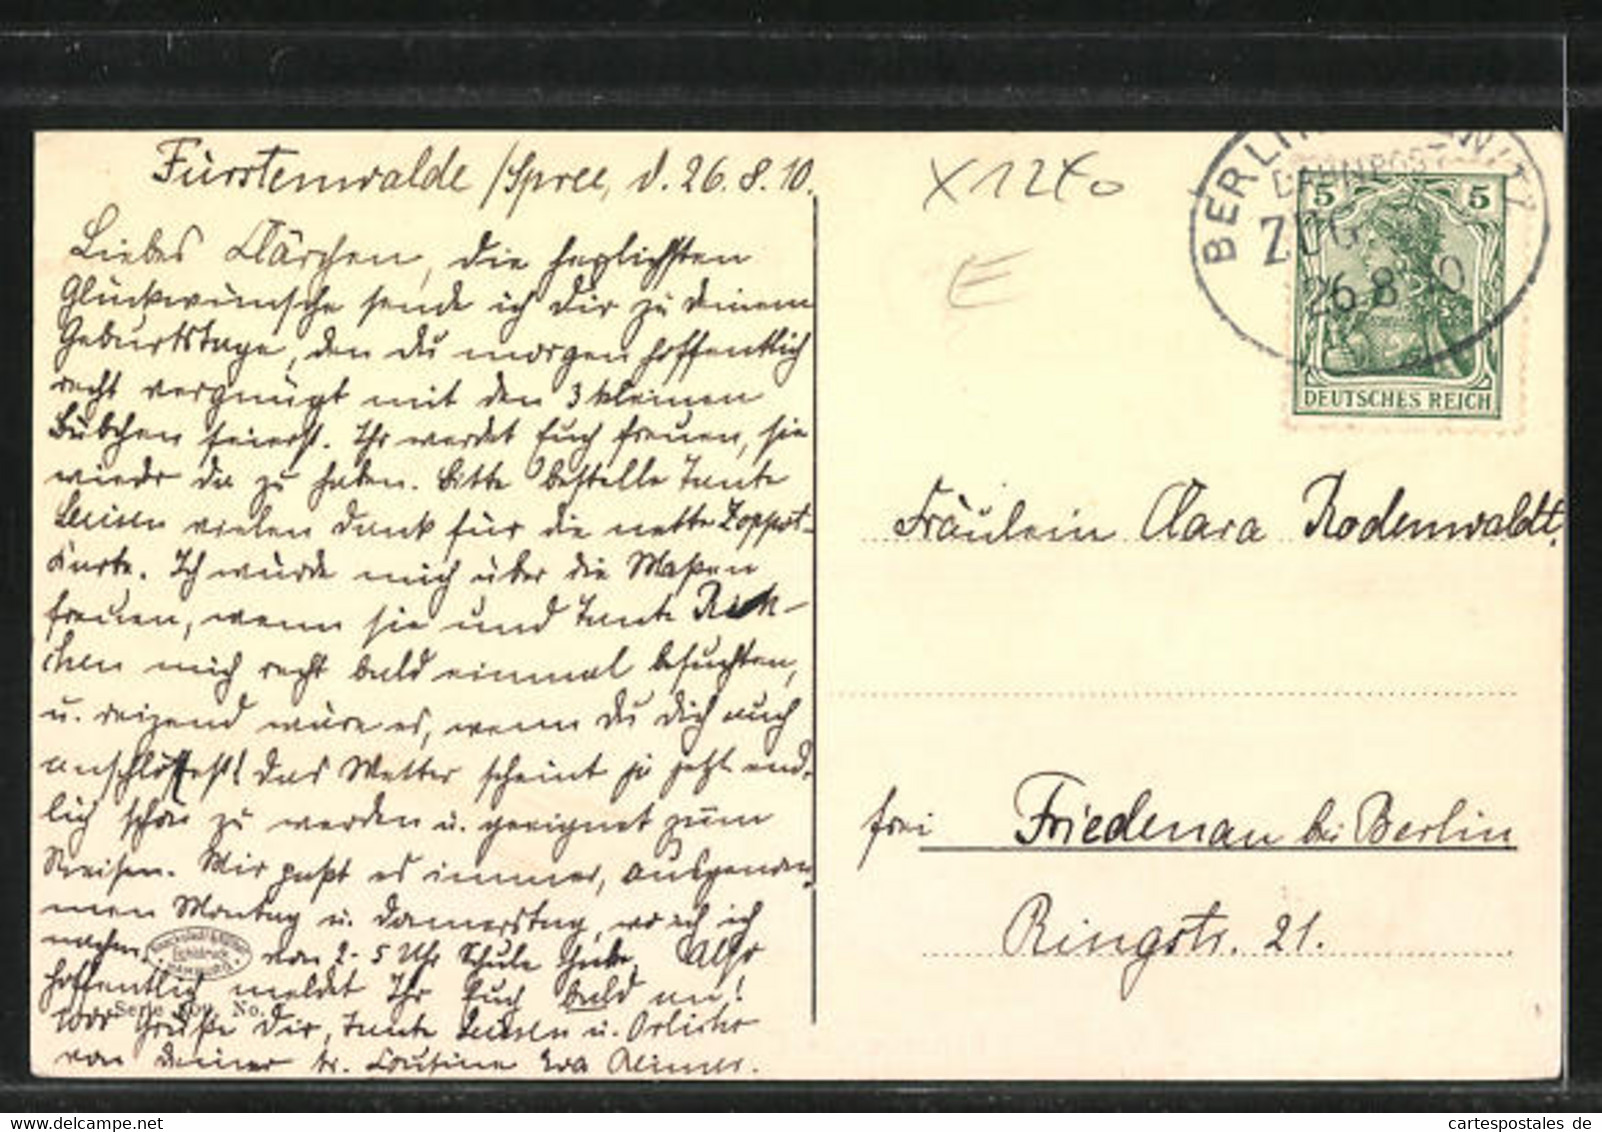 Fürstenwalde /Spree, d. 26.8.10.
Liebes Clärchen, die herzlichsten
Glückwünsche sende ich Dir zu deinem
Geburtstage, den du morgen hoffentlich
recht vergnügt mit den 3 kleinen
Bübchen feierst. Ihr werdet Euch freuen, sie
wieder da zu haben. Bitte bestelle Tante
vielen Dank für die nette Zoppot-
Karte. Ich würde mich über die Maßen
freuen, wenn sie und Tante Riek-
chen mich recht bald einmal besuchten,
u. reizend wäre es, wenn Du Dich auch
anschlössest! Das Wetter scheint ja jetzt end-
lich schön zu werden u. geeignet zum
Reisen. Mir paßt es immer, ausgenom-
men Montag u. Donnerstag, wo ich
nachm. von 2-5 Uhr Schule habe. Also
hoffentlich meldet Ihr Euch bald an!
Grüße Dir, Tante u.
von Deiner tr. Cousine Eva
Serie No.
X1240
E
BERLIN
BAHNPOST
ZUG
26 8 10
5 5
DEUTSCHES REICH
Fräulein Clara Rodenwaldt.
frei Friedenau bei Berlin
Ringstr. 21.
cartespostales de